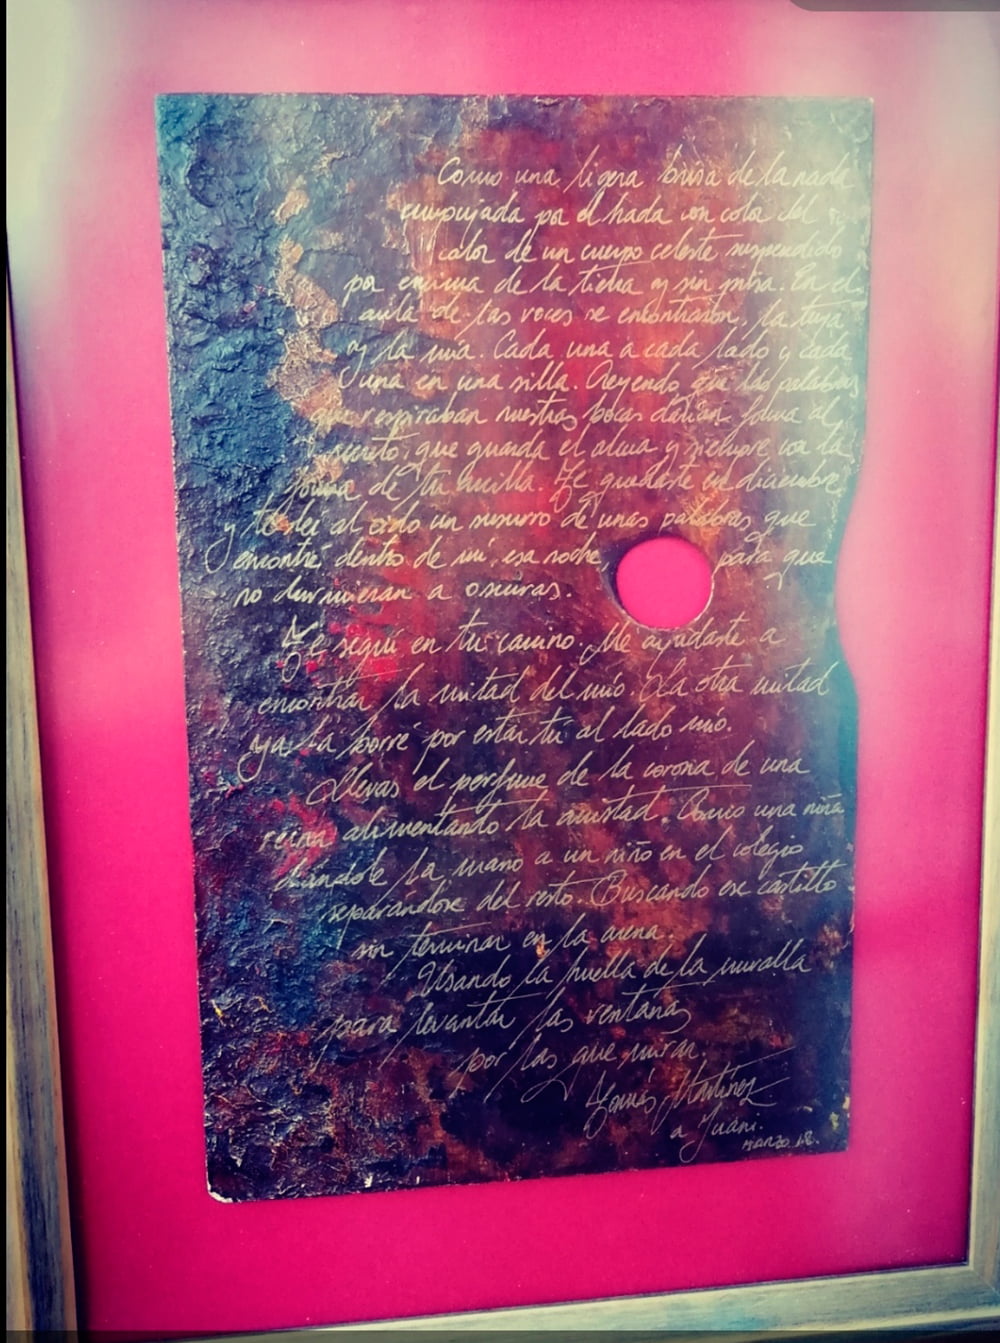 Como una ligera brisa de la nada
empujada por el hada con color del
calor de un cuerpo celeste suspendido
por encima de la tierra y sin prisa. En el
aula de las voces se encontraron. La tuya
y la mía. Cada una a cada lado y cada
una en una silla. Creyendo que las palabras
que respiraban nuestras bocas darían forma al
secreto que guarda el alma y siempre con la
forma de tu silla. Te quedaste en diciembre
y te leí al oído un susurro de unas palabras que
encontré dentro de mí esa noche para que
no durmieran a oscuras.
Te seguí en tu camino. Me ayudaste a
encontrar la mitad del mío. La otra mitad
ya la borré por estar tú al lado mío.
Llevas el perfume de la corona de una
reina alimentando la amistad. Como una niña
dándole la mano a un niño en el colegio
separándose del resto. Buscando ese castillo
sin terminar en la arena.
Usando la huella de la muralla
para levantar las ventanas
por las que mirar.
Tomás Martínez
a Juani.
MARZO 18.